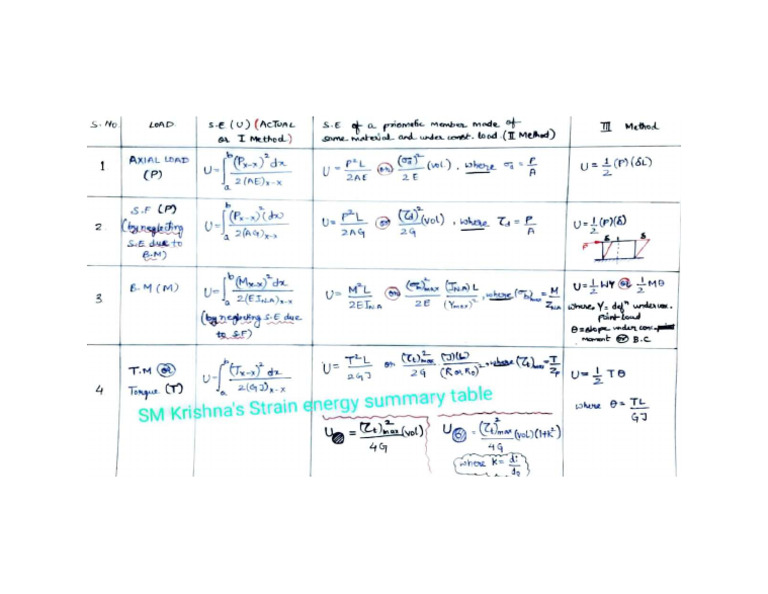 S.No LOAD S.E (U) (ACTUAL or I Method) S.E of a prismatic member made of same material and under const. load (II Method) III Method
1 AXIAL LOAD (P) U = ∫ₐᵇ (Pₓ₋ₓ)² dx / 2(AE)ₓ₋ₓ U = P²L / 2AE or (σd)² / 2E (vol), where σd = P/A U = 1/2 (P)(δL)
2 S.F (P) (by neglecting S.E due to B.M) U = ∫ₐᵇ (Pₓ₋ₓ)² (dx) / 2(AG)ₓ₋ₓ U = P²L / 2AG or (τd)² / 2G (vol), where τd = P/A U = 1/2 (P)(δ)
P δ δ
3 B.M (M) U = ∫ₐᵇ (Mₓ₋ₓ)² dx / 2(EI_N.A)ₓ₋ₓ (by neglecting S.E due to S.F) U = M²L / 2EI_N.A or (σb)²max / 2E (I_N.A) L / (Ymax)², where (σb)max = M / Z_NA U = 1/2 WY or 1/2 Mθ
where, Y = defⁿ under
point load
θ = slope under
moment or B.C
4 T.M or Torque (T) U = ∫ₐᵇ (Tₓ₋ₓ)² dx / 2(GJ)ₓ₋ₓ U = T²L / 2GJ or (τt)²max / 2G (J)(L) / (R or R₀)², where (τt)max = T / Zp U = 1/2 Tθ
where θ = TL / GJ
SM Krishna's Strain energy summary table
U = (τt)²max / 4G (vol) U = (τt)²max / 4G (vol)(1+k²)
where k = di / d₀